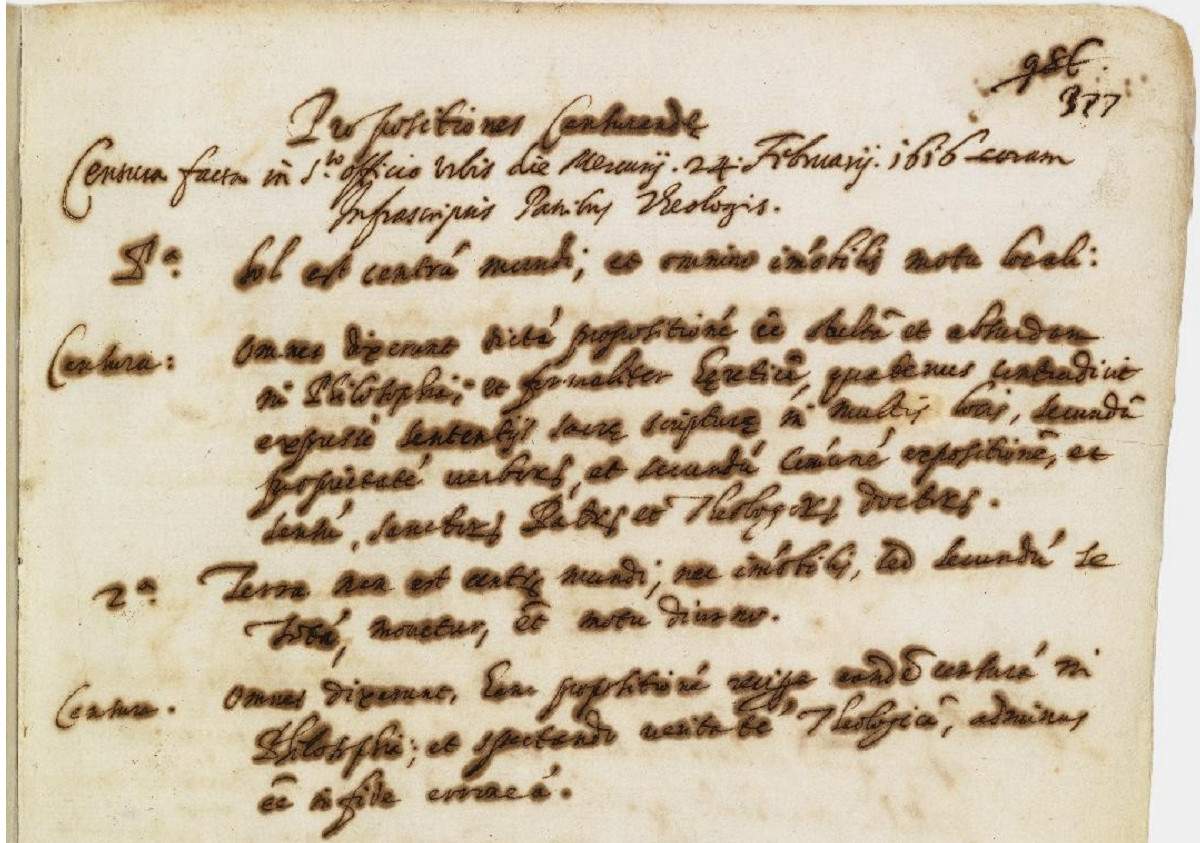 986
377
Propositiones Censurandę
Censura facta in S.to officio Urbis die Mercurij. 24. Februarij. 1616 coram
Infrascriptis Patribus Theologis.
P.a Sol est centrũ mundi; et omnino imõbilis motu locali:
Censura: Omnes dixerunt dictã propositionẽ eẽ stultã et absurdam
in Philosophia; et formaliter hęreticã, quatenus contradicit
expressè sententijs sacrę scripturę in multis locis, secundũ
proprietatẽ verborũ, et secundũ cõmunẽ expositionẽ, et
sensũ, sanctorũ Patrũ et Theologorũ doctorũ.
2.a Terra non est centrũ mundi, nec imõbilis, sed secundũ se
totã, movetur, et̃ motu diurno.
Censura. Omnes dixerunt, hanc propositionẽ recipe eandẽ censurã in
Philosophia; et spectando veritatẽ Theologicã, adminus
eẽ in fide erroneã.